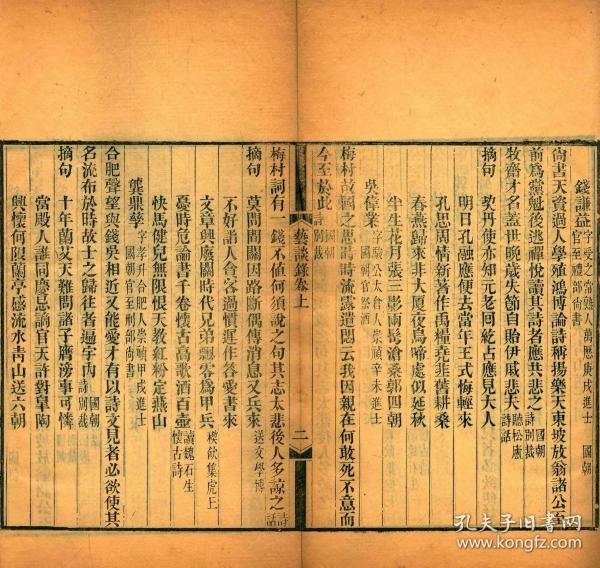 錢謙益字受之常熟人萬歷庚戌進士 國朝官至禮部尚書
尚書天資過人學殖鴻博論詩稱揚樂天東坡放翁諸公
前為黨魁後逃禪悅讀其詩者應共悲之國朝詩別裁
牧齋才名蓋世晚歲失節自貽伊戚悲夫聽松廬詩話
摘句 契丹使亦知元老回紇占應見大人
明日孔融應便去當年王式悔輕來
孔思周情新著作禹糧堯韭舊耕桑
春燕歸來非大厦夜烏啼處似延秋
半生花月張三影兩鬢滄桑郭四朝
吳偉業字駿公太倉人崇禎辛未進士 國朝官祭酒
梅村故國之思時時流露遣悶云我因親在何敢死不意而
今至於此國朝詩別裁
藝談錄卷上 二
梅村詞有一錢不值何須說之句其志太悲後人多諒之詩話
摘句 莫問間關因路斷偶傳消息又兵來送友學博
不好詣人貪客過慣遲作答愛書來
文章興廢關時代兄弟飄零為甲兵楔飲集虎丘
憂時危論書千卷懷古高歌酒百壺讀魏石生懷古詩
快馬健兒無限恨天教紅粉定燕山
龔鼎孳字孝升合肥人崇禎甲戌進士 國朝官至刑部尚書
合肥聲望與錢吳相近又能愛才有以詩文見者必欲使其
名流布於時故士之歸往者遍宇內國朝詩別裁
摘句 十年蘭艾天難問諸子薺滂事可憐
當殿人誰同慶忌謫官天許對皐陶
興懷何限蘭亭感流水青山送六朝
孔夫子旧书网
www.kongfz.com